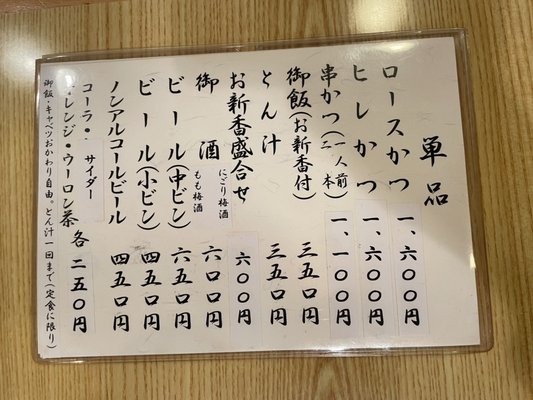 単品
ロースかつ 一、六〇〇円
ヒレかつ 一、六〇〇円
串かつ(一人前二本) 一、一〇〇円
御飯(お新香付) 三五〇円
とん汁 三五〇円
お新香盛合せ 六〇〇円
御酒 にごり梅酒 もも梅酒 六〇〇円
ビール(中ビン) 六五〇円
ビール(小ビン) 四五〇円
ノンアルコールビール 四五〇円
コーラ・サイダー
オレンジ・ウーロン茶 各二五〇円
御飯・キャベツおかわり自由。とん汁一回まで(定食に限り)